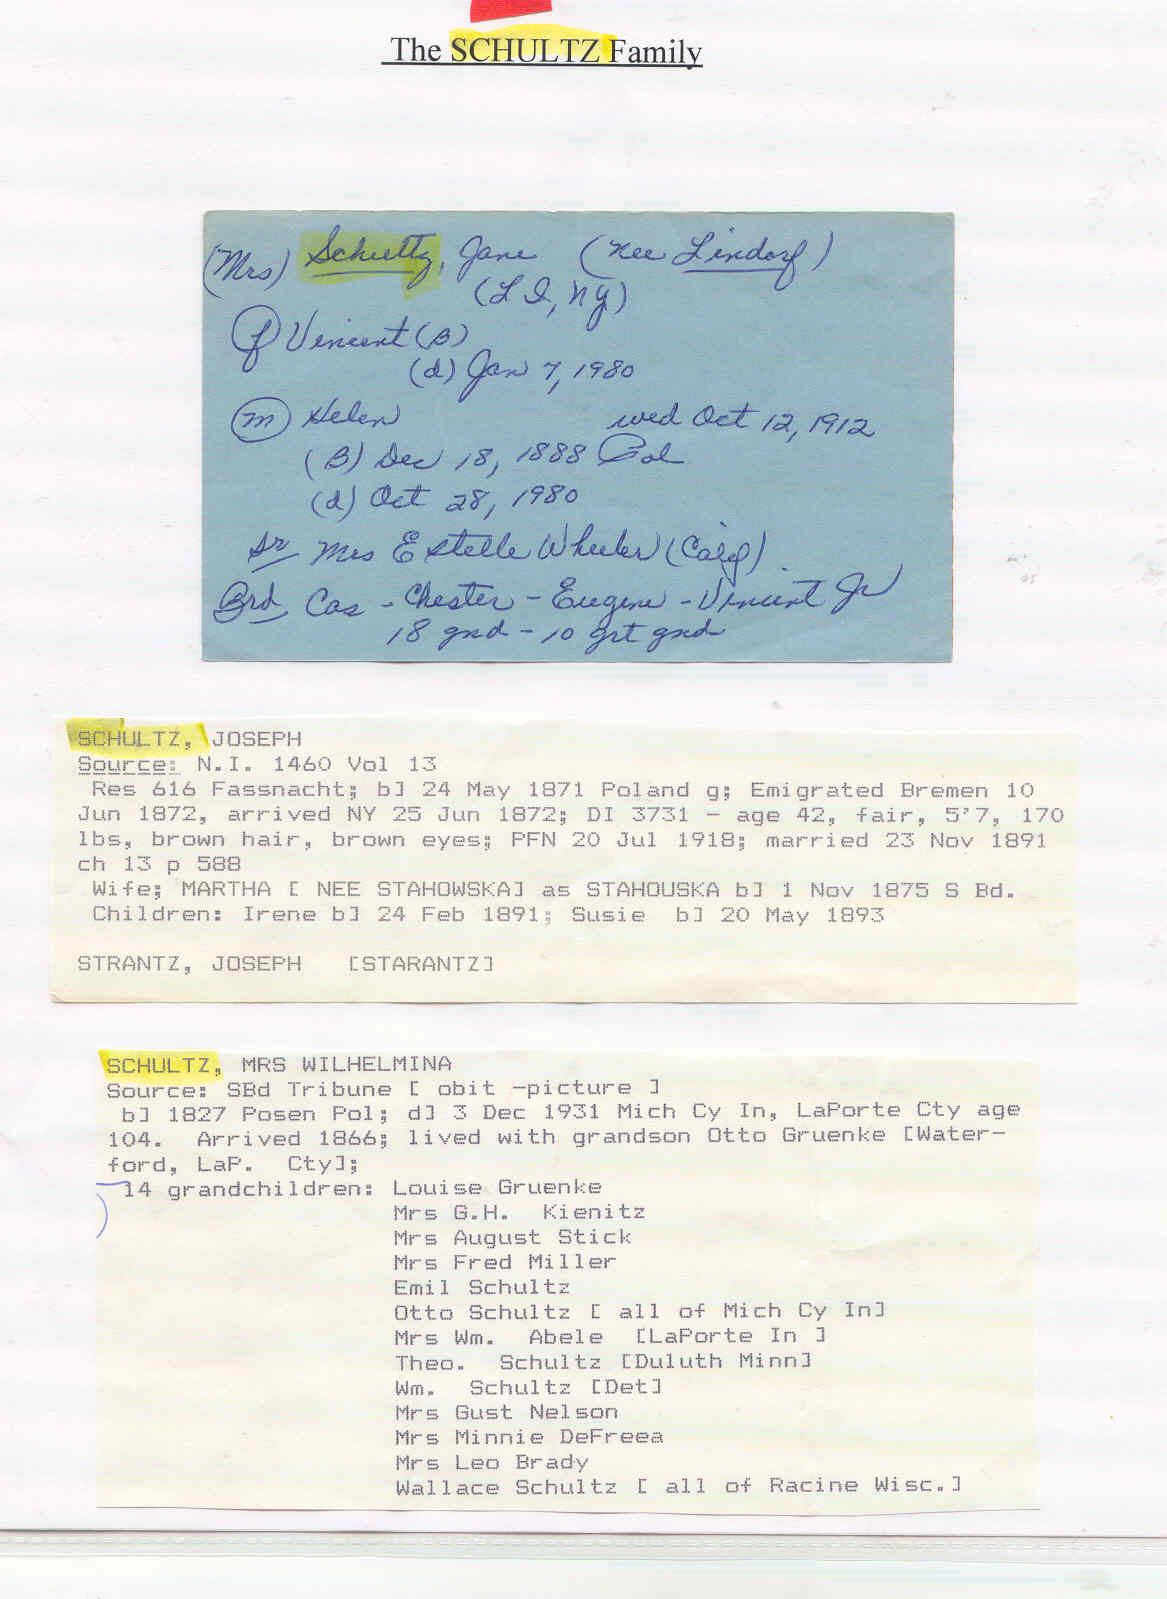 The SCHULTZ Family
(Mrs) Schultz, Jane (nee Lindorf)
(L I, NY)
(f) Vincent (B)
(d) Jan 7, 1980
(m) Helen wed Oct 12, 1912
(B) Dec 18, 1888 Pol
(d) Oct 28, 1980
Sr Mrs Estelle Wheeler (Calif)
Brd Cas - Chester - Eugene - Vincent Jr
18 gnd - 10 grt gnd
SCHULTZ, JOSEPH
Source: N.I. 1460 Vol 13
Res 616 Fassnacht; b] 24 May 1871 Poland g; Emigrated Bremen 10
Jun 1872, arrived NY 25 Jun 1872; DI 3731 - age 42, fair, 5'7, 170
lbs, brown hair, brown eyes; PFN 20 Jul 1918; married 23 Nov 1891
ch 13 p 588
Wife; MARTHA [ NEE STAHOWSKA] as STAHOUSKA b] 1 Nov 1875 S Bd.
Children: Irene b] 24 Feb 1891; Susie b] 20 May 1893
STRANTZ, JOSEPH [STARANTZ]
SCHULTZ, MRS WILHELMINA
Source: SBd Tribune [ obit -picture ]
b] 1827 Posen Pol; d] 3 Dec 1931 Mich Cy In, LaPorte Cty age
104. Arrived 1866; lived with grandson Otto Gruenke [Water-
ford, LaP. Cty];
14 grandchildren: Louise Gruenke
Mrs G.H. Kienitz
Mrs August Stick
Mrs Fred Miller
Emil Schultz
Otto Schultz [ all of Mich Cy In]
Mrs Wm. Abele [LaPorte In ]
Theo. Schultz [Duluth Minn]
Wm. Schultz [Det]
Mrs Gust Nelson
Mrs Minnie DeFreea
Mrs Leo Brady
Wallace Schultz [ all of Racine Wisc.]